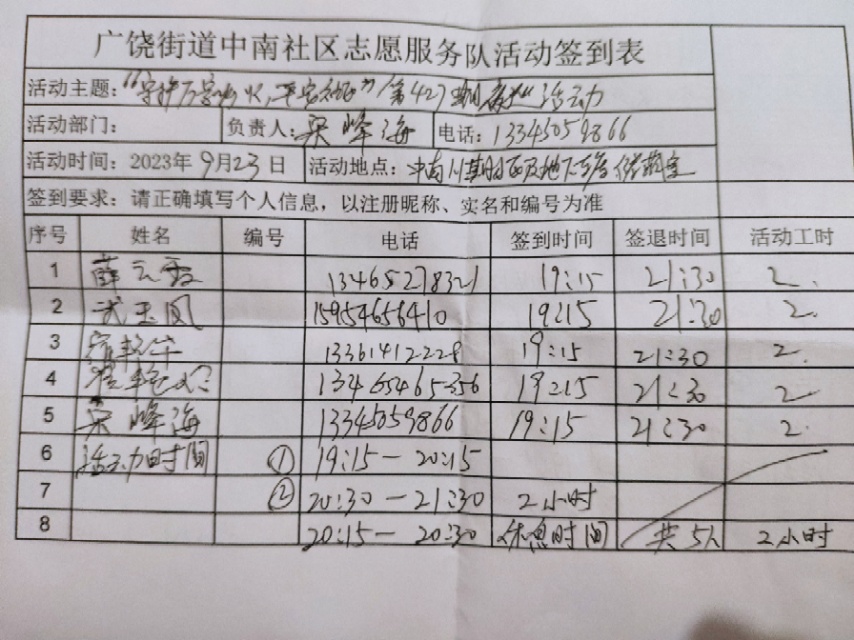 广饶街道中南社区志愿服务队活动签到表
活动主题:“守护万家灯火,平安社区”第427期夜巡活动
活动部门: 负责人:宋峰海 电话:13345059866
活动时间:2023年9月23日 活动地点:中南川
签到要求:请正确填写个人信息,以注册昵称、实名和编号为准
序号 姓名 编号 电话 签到时间 签退时间 活动工时
1 薛云霞 13465278321 19:15 21:30 2.
2 武玉凤 15954656410 19:15 21:30 2.
3 13361412228 19:15 21:30 2.
4 13465465356 19:15 21:30 2
5 宋峰海 13345059866 19:15 21:30 2.
6 活动时间 ① 19:15—20:15
7 ② 20:30—21:30 2小时
8 20:15—20:30 休息时间 共5人 2小时